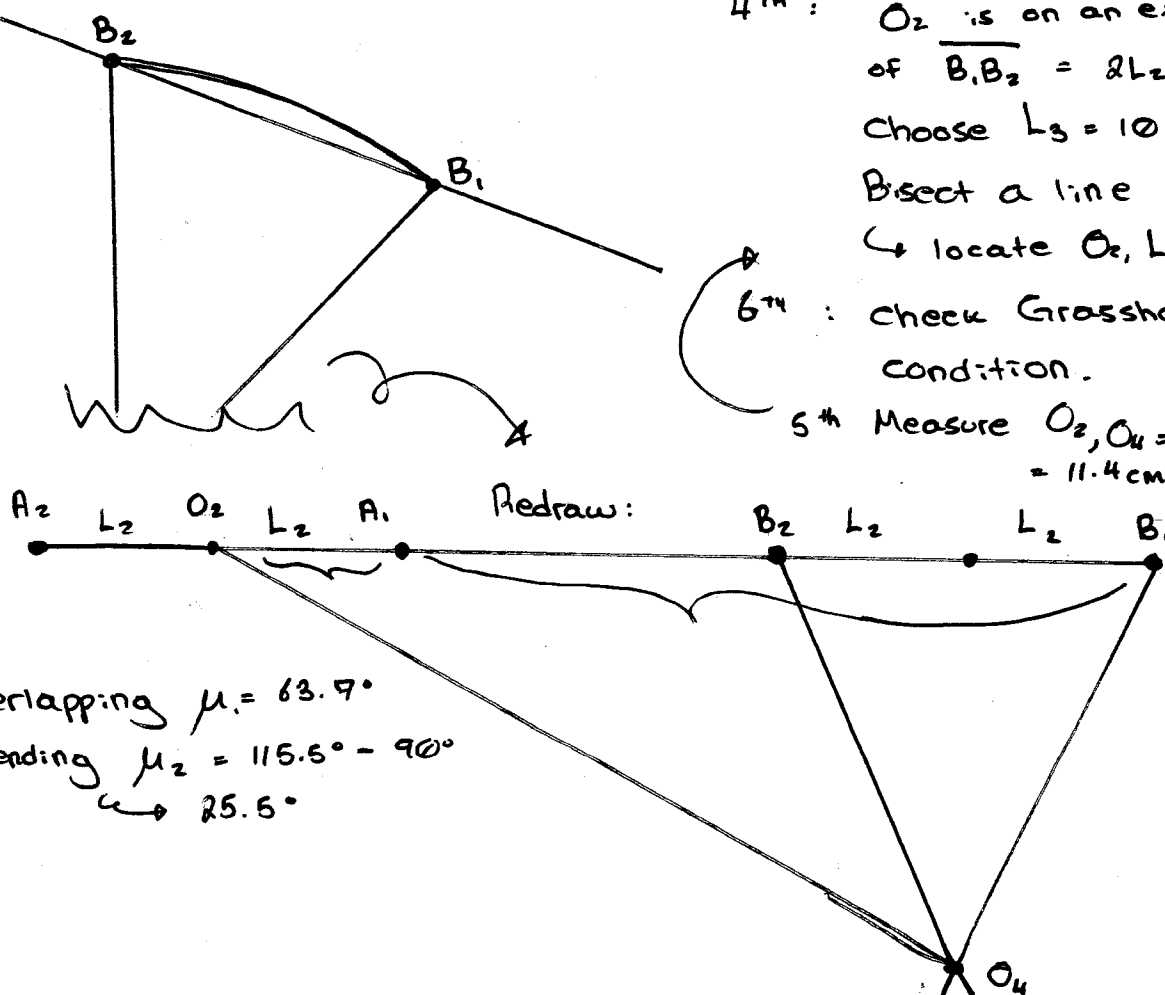 B₂
B₁
4TH : O₂ is on an ex
of B₁B₂ = 2L₂
Choose L₃ = 10
Bisect a line
↳ locate O₂, L
6TH : check Grassho
condition.
5th Measure O₂,O₄ =
= 11.4cm
Redraw:
A₂ L₂ O₂ L₂ A₁ B₂ L₂ L₂ B₁
erlapping μ₁= 63.7°
ending μ₂ = 115.5° - 90°
↳ 25.5°
O₄